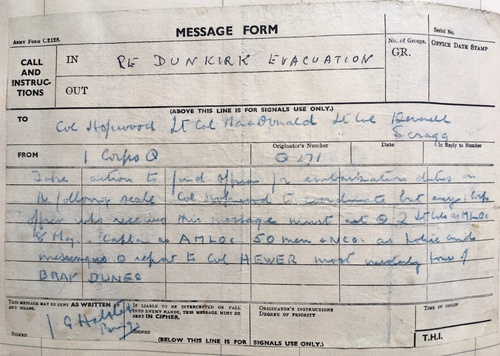 MESSAGE FORM
Serial No.
ARMY FORM C.2128.
No. of Groups
GR.
OFFICE DATE STAMP
CALL AND INSTRUC-TIONS
IN
RE DUNKIRK EVACUATION
OUT
(ABOVE THIS LINE IS FOR SIGNALS USE ONLY.)
TO
Col Hopwood Lt Col MacDonald Lt Col
Scragg
FROM
Originator's Number
Date
In Reply to Number
1 Corps Q
Q 271
Take action to find officers for embarkation duties on
the following scale Col Hopwood to coordinate but any Corps
officer who receives this message must act 2 Lt Cols as MLOs
8 Maj Captns as AMLOs 50 men NCOs as Police and
messengers report to Col HEWER most town of
BRAY DUNES
THIS MESSAGE MAY BE SENT AS WRITTEN BY ANY MEANS.
IF LIABLE TO BE INTERCEPTED OR FALL INTO ENEMY HANDS, THIS MESSAGE MUST BE SENT IN CIPHER.
ORIGINATOR'S INSTRUCTIONS
DEGREE OF PRIORITY
TIME OF ORIGIN
SIGNED
SIGNED
T.H.I.
(BELOW THIS LINE IS FOR SIGNALS USE ONLY.)